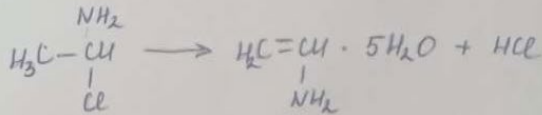 NH₂
H₃C-CH ⟶ H₂C=CH · 5H₂O + HCl
Cl
NH₂